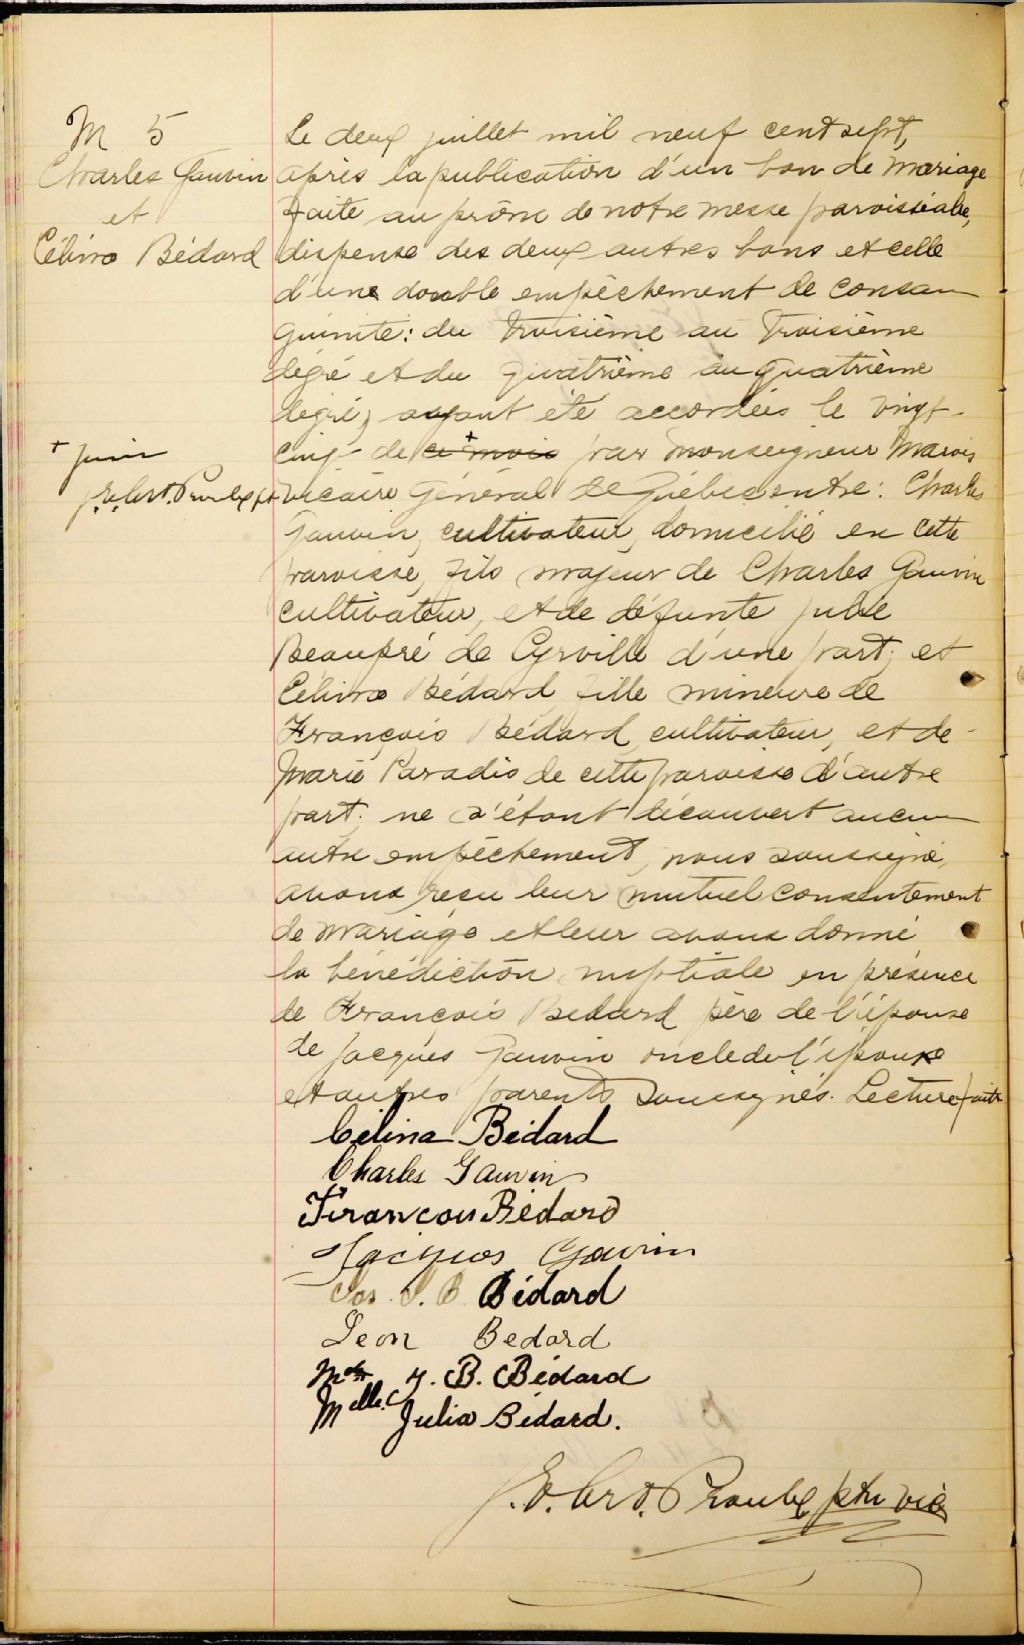 M 5
Charles Gauvin
et
Célina Bédard
Le deux juillet mil neuf cent sept,
après la publication d'un ban de mariage
faite au prône de notre messe paroissiale,
dispense des deux autres bans et celle
d'une double empêchement de consan
guinité: du troisième au troisième
dégré et du quatrième au quatrième
dégré, ayant été accordées le vingt-
cinq de ce mois par Monseigneur Marois
+ juin
Vicaire Général de Québec entre: Charles
Gauvin, cultivateur, domicilié en cette
paroisse, fils majeur de Charles Gauvin
cultivateur, et de défunte Julie
Beaupré de Cyrville d'une part; et
Célina Bédard, fille mineure de
François Bédard, cultivateur, et de
Marie Paradis de cette paroisse d'autre
part; ne s'étant découvert aucun
autre empêchement, nous soussigné,
avons reçu leur mutuel consentement
de mariage et leur avons donné
la bénédiction nuptiale en présence
de François Bedard père de l'épouse
de Jacques Gauvin oncle de l'époux
et autres parents soussignés. Lecture faite
Célina Bédard
Charles Gauvin
Francois Bédard
Jacques Gauvin
Jos. J. B. Bédard
Leon Bedard
Mde J. B. Bédard
Melle Julia Bédard.
Proulx ptre vic